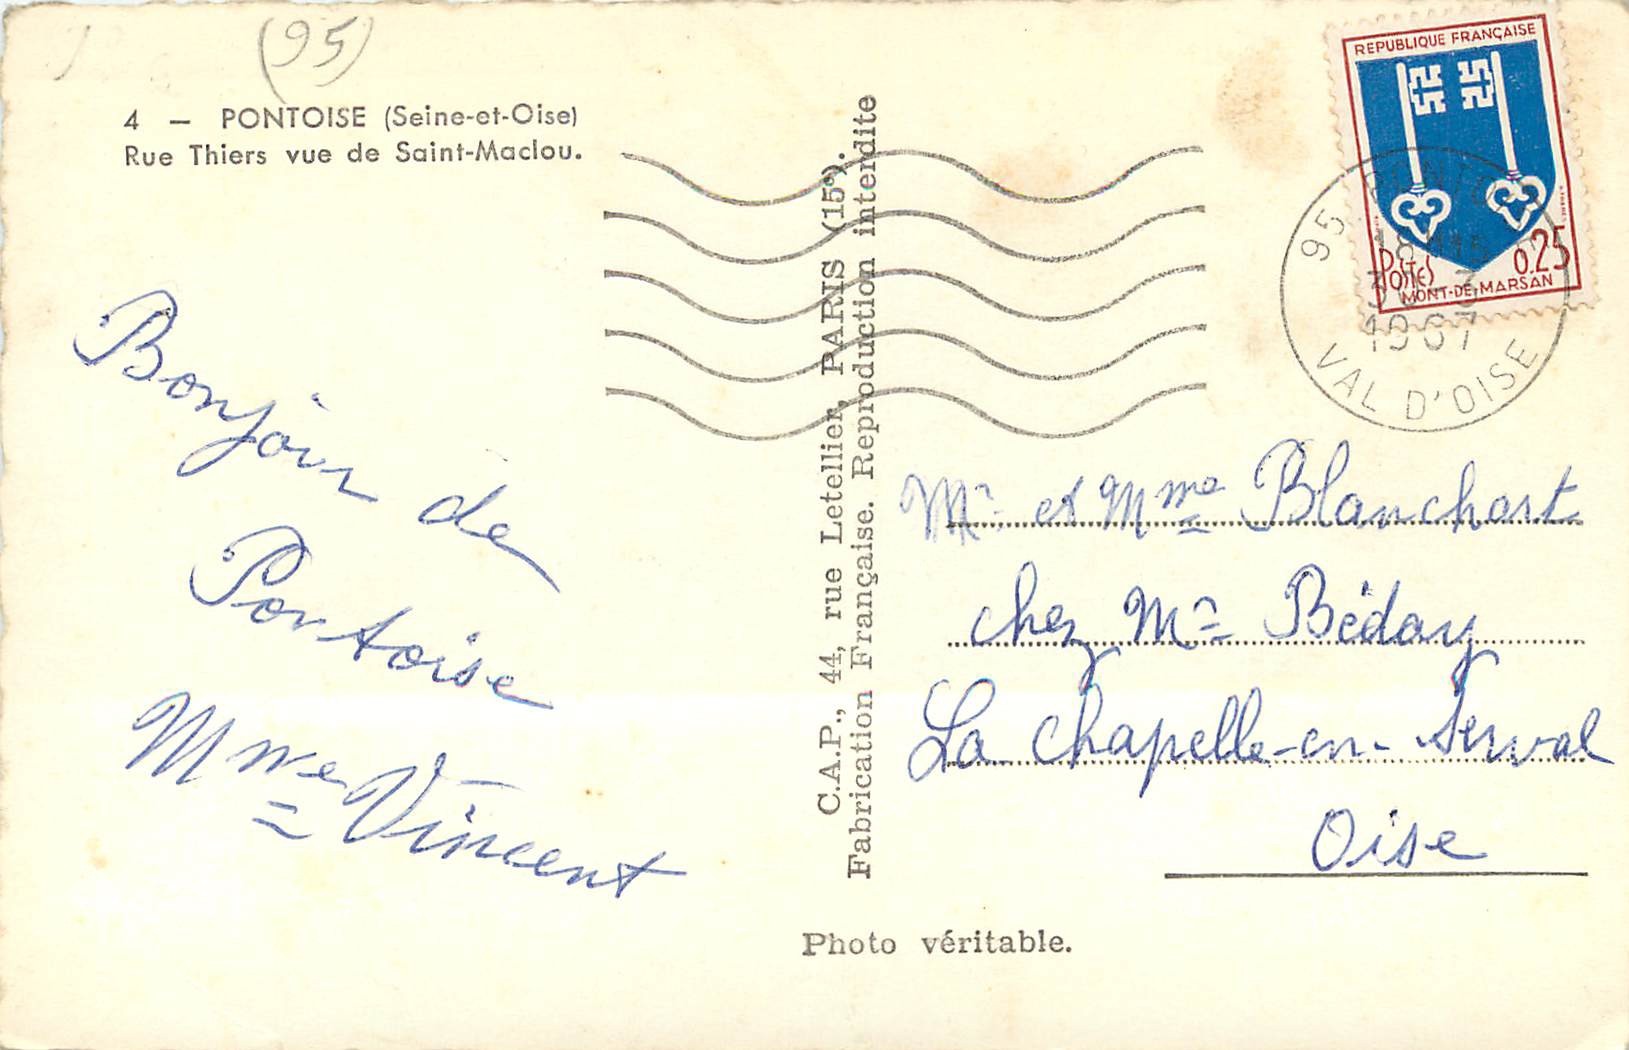 (95)
4 — PONTOISE (Seine-et-Oise)
Rue Thiers vue de Saint-Maclou.
Bonjour de
Pontoise
Mme Vincent
C.A.P., 44, rue Letellier, PARIS (15e).
Fabrication Française. Reproduction interdite
Photo véritable.
REPUBLIQUE FRANÇAISE
POSTES 0,25
MONT-DE-MARSAN
95 PONTOISE
1967
VAL D'OISE
Mr et Mme Blanchart
chez Mr Béday
La Chapelle-en-Serval
Oise